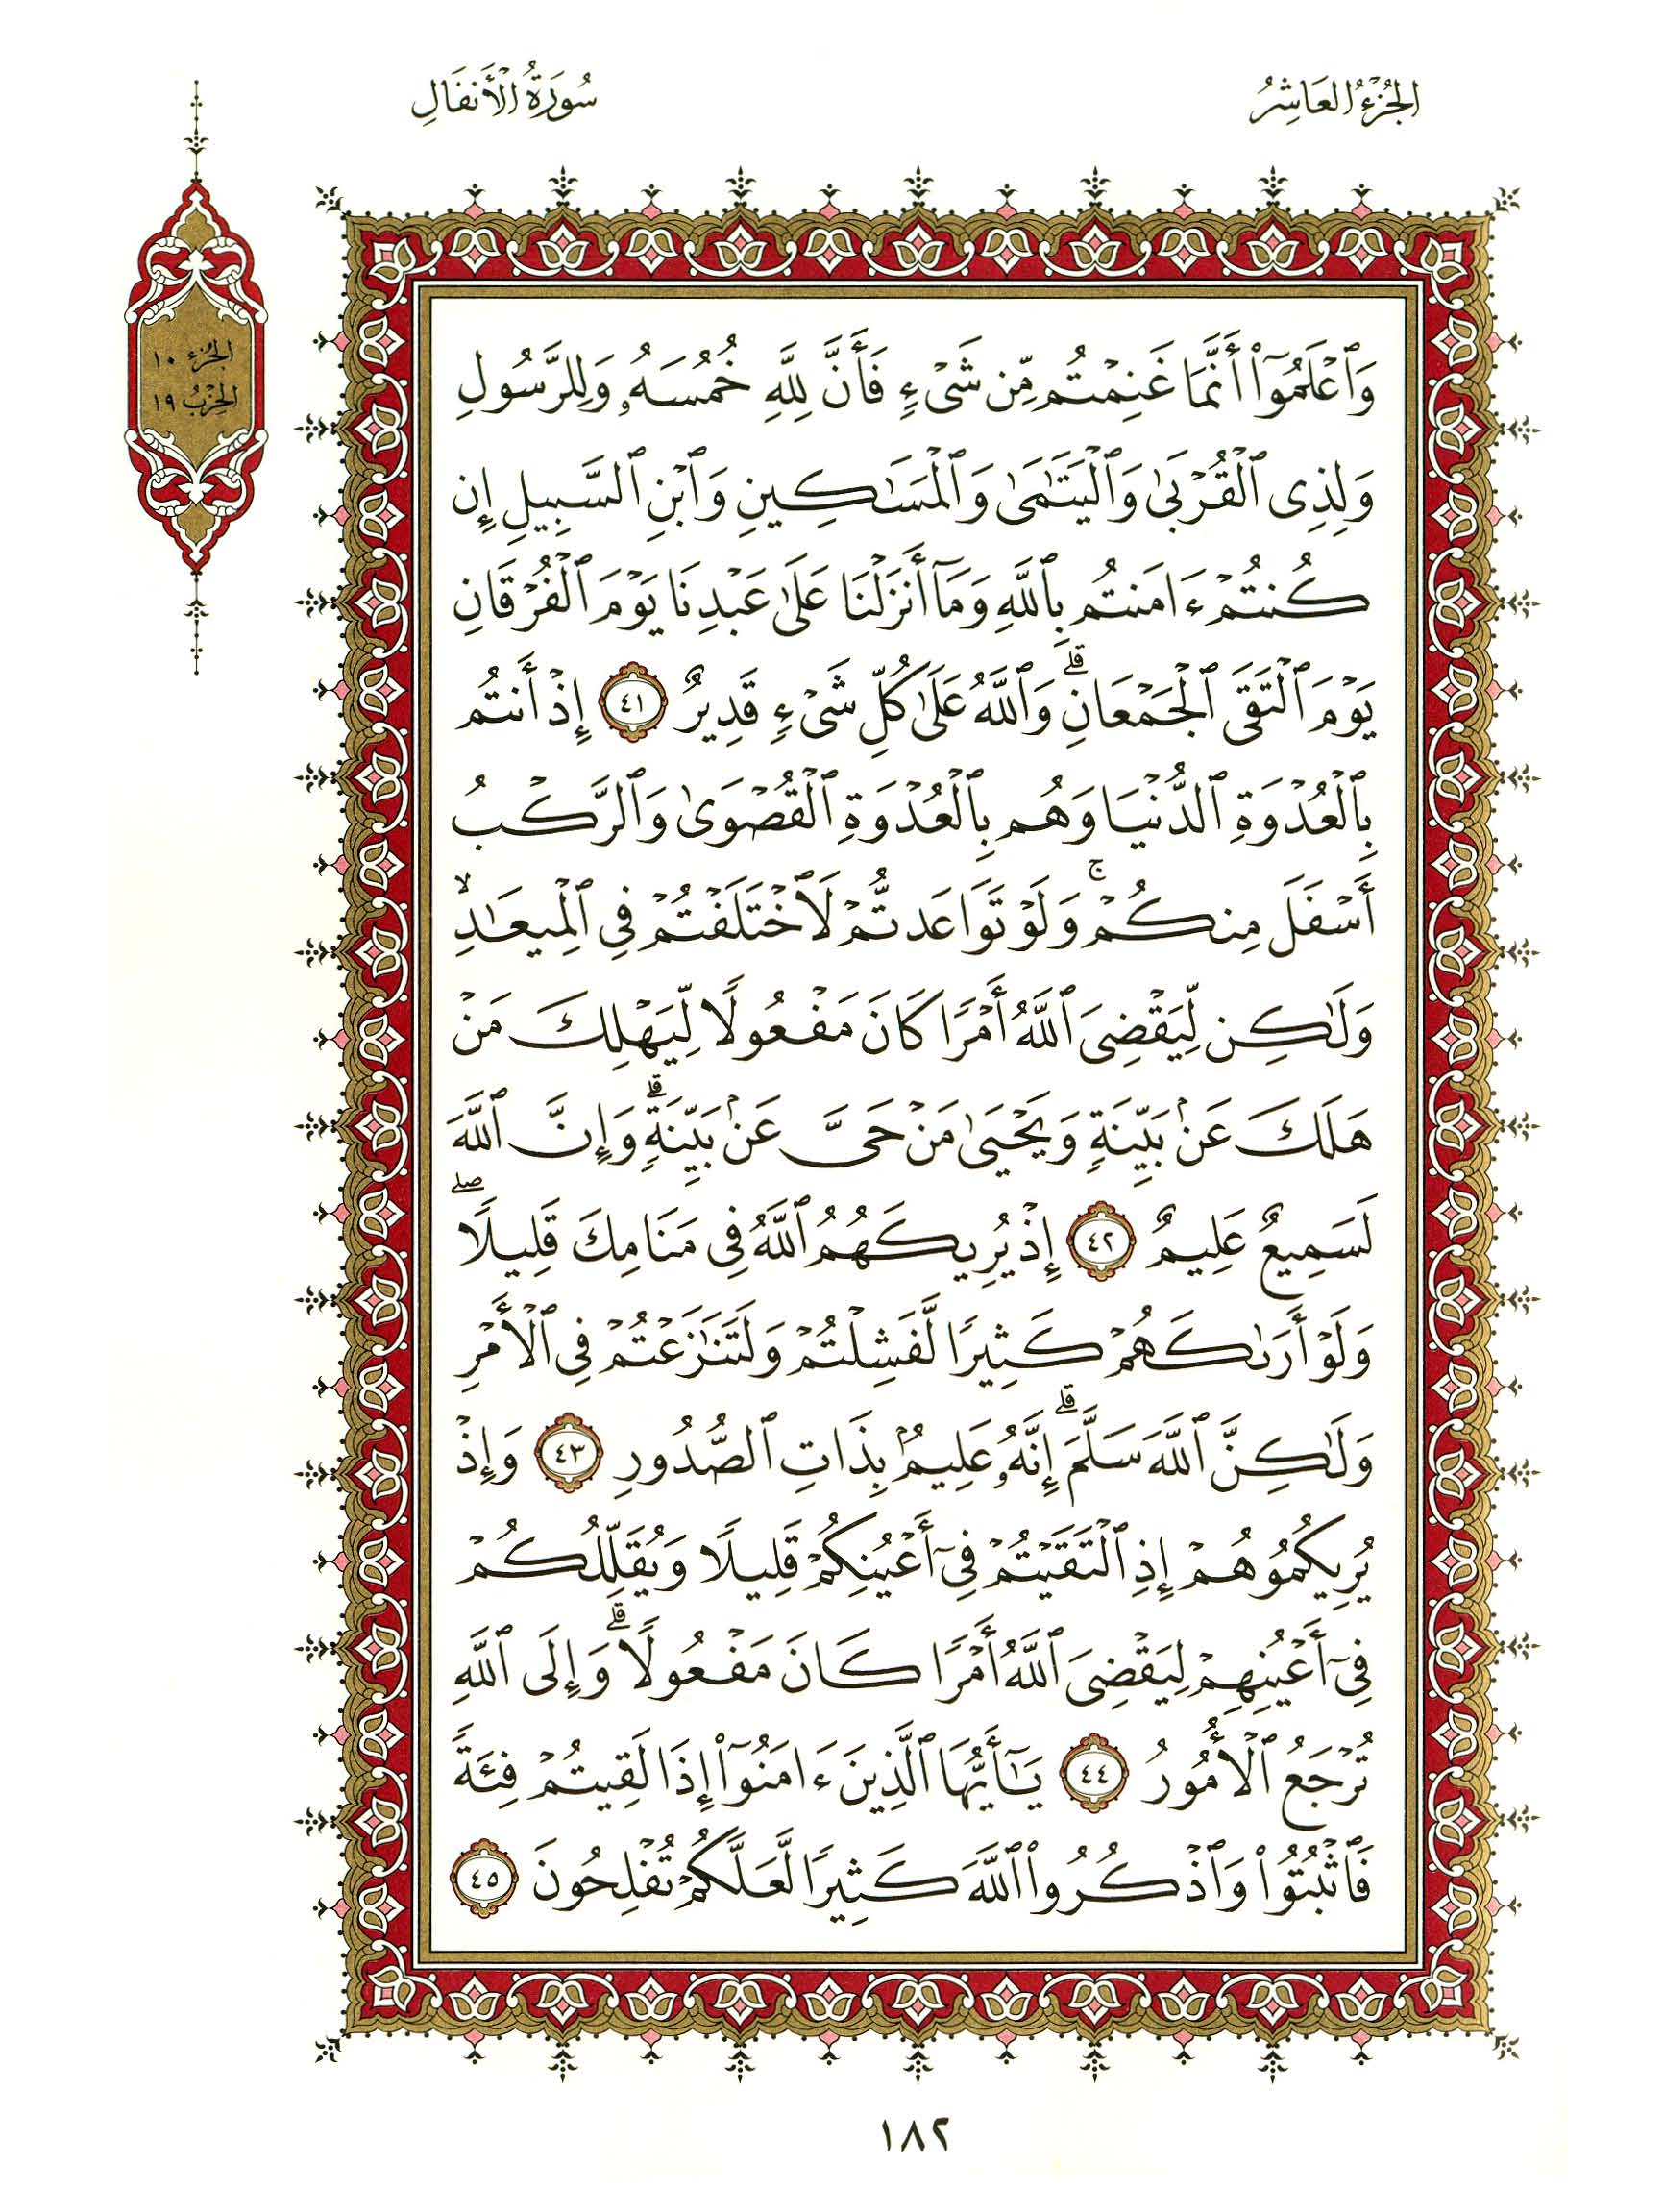 الجُزْءُ العَاشِرُ
سُورَةُ الأَنفَالِ
الجُزْءُ ١٠
الحِزْبُ ١٩
وَٱعْلَمُوٓا۟ أَنَّمَا غَنِمْتُم مِّن شَىْءٍ فَأَنَّ لِلَّهِ خُمُسَهُۥ وَلِلرَّسُولِ
وَلِذِى ٱلْقُرْبَىٰ وَٱلْيَتَـٰمَىٰ وَٱلْمَسَـٰكِينِ وَٱبْنِ ٱلسَّبِيلِ إِن
كُنتُمْ ءَامَنتُم بِٱللَّهِ وَمَآ أَنزَلْنَا عَلَىٰ عَبْدِنَا يَوْمَ ٱلْفُرْقَانِ
يَوْمَ ٱلْتَقَى ٱلْجَمْعَانِ ۗ وَٱللَّهُ عَلَىٰ كُلِّ شَىْءٍ قَدِيرٌ ٤١ إِذْ أَنتُم
بِٱلْعُدْوَةِ ٱلدُّنْيَا وَهُم بِٱلْعُدْوَةِ ٱلْقُصْوَىٰ وَٱلرَّكْبُ
أَسْفَلَ مِنكُمْ ۚ وَلَوْ تَوَاعَدتُّمْ لَٱخْتَلَفْتُمْ فِى ٱلْمِيعَـٰدِ ۙ
وَلَـٰكِن لِّيَقْضِىَ ٱللَّهُ أَمْرًا كَانَ مَفْعُولًا لِّيَهْلِكَ مَنْ
هَلَكَ عَنۢ بَيِّنَةٍ وَيَحْيَىٰ مَنْ حَىَّ عَنۢ بَيِّنَةٍ ۗ وَإِنَّ ٱللَّهَ
لَسَمِيعٌ عَلِيمٌ ٤٢ إِذْ يُرِيكَهُمُ ٱللَّهُ فِى مَنَامِكَ قَلِيلًا ۖ
وَلَوْ أَرَىٰكَهُمْ كَثِيرًا لَّفَشِلْتُمْ وَلَتَنَـٰزَعْتُمْ فِى ٱلْأَمْرِ
وَلَـٰكِنَّ ٱللَّهَ سَلَّمَ ۗ إِنَّهُۥ عَلِيمٌۢ بِذَاتِ ٱلصُّدُورِ ٤٣ وَإِذْ
يُرِيكُمُوهُمْ إِذِ ٱلْتَقَيْتُمْ فِىٓ أَعْيُنِكُمْ قَلِيلًا وَيُقَلِّلُكُمْ
فِىٓ أَعْيُنِهِمْ لِيَقْضِىَ ٱللَّهُ أَمْرًا كَانَ مَفْعُولًا ۗ وَإِلَى ٱللَّهِ
تُرْجَعُ ٱلْأُمُورُ ٤٤ يَـٰٓأَيُّهَا ٱلَّذِينَ ءَامَنُوٓا۟ إِذَا لَقِيتُمْ فِئَةً
فَٱثْبُتُوا۟ وَٱذْكُرُوا۟ ٱللَّهَ كَثِيرًا لَّعَلَّكُمْ تُفْلِحُونَ ٤٥
١٨٢